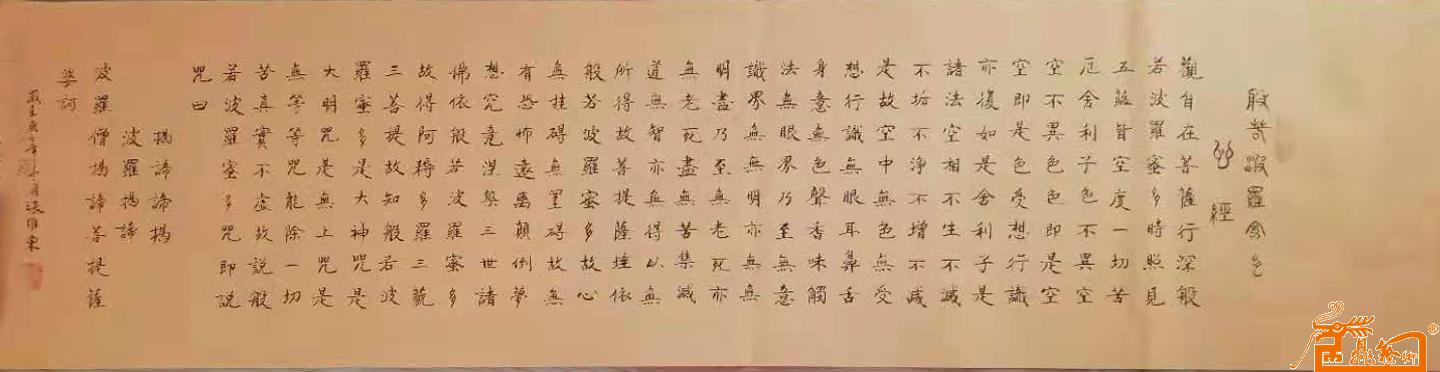 般若波羅蜜多
心經
觀自在菩薩行深般
若波羅蜜多時照見
五蘊皆空度一切苦
厄舍利子色不異空
空不異色色即是空
空即是色受想行識
亦復如是舍利子是
諸法空相不生不滅
不垢不淨不增不減
是故空中無色無受
想行識無眼耳鼻舌
身意無色聲香味觸
法無眼界乃至無意
識界無無明亦無無
明盡乃至無老死亦
無老死盡無苦集滅
道無智亦無得以無
所得故菩提薩埵依
般若波羅蜜多故心
無挂碍無罣碍故無
有恐怖遠離顛倒夢
想究竟涅槃三世諸
佛依般若波羅蜜多
故得阿耨多羅三藐
三菩提故知般若波
羅蜜多是大神咒是
大明咒是無上咒是
無等等咒能除一切
苦真實不虛故說般
若波羅蜜多咒即說
咒曰
揭諦諦揭
波羅揭諦
波羅僧揭諦菩提薩
婆訶
張維東